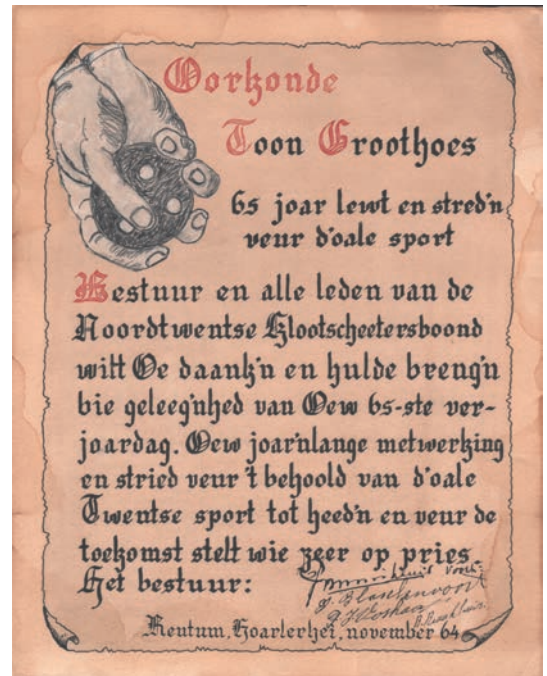 Oorkonde
Toon Groothoes
65 joar lewt en stred'n
veur d'oale sport
Bestuur en alle leden van de
Noordtwentse Klootscheetersboond
witt Oe daank'n en hulde breng'n
bie geleeg'nhed van Oew 65-ste ver-
joardag. Oew joar'nlange metwerking
en stried veur 't behoold van d'oale
Twentse sport tot heed'n en veur de
toekomst stelt wie zeer op pries.
Het bestuur:
Reutum, Hoarlerhei, november 64